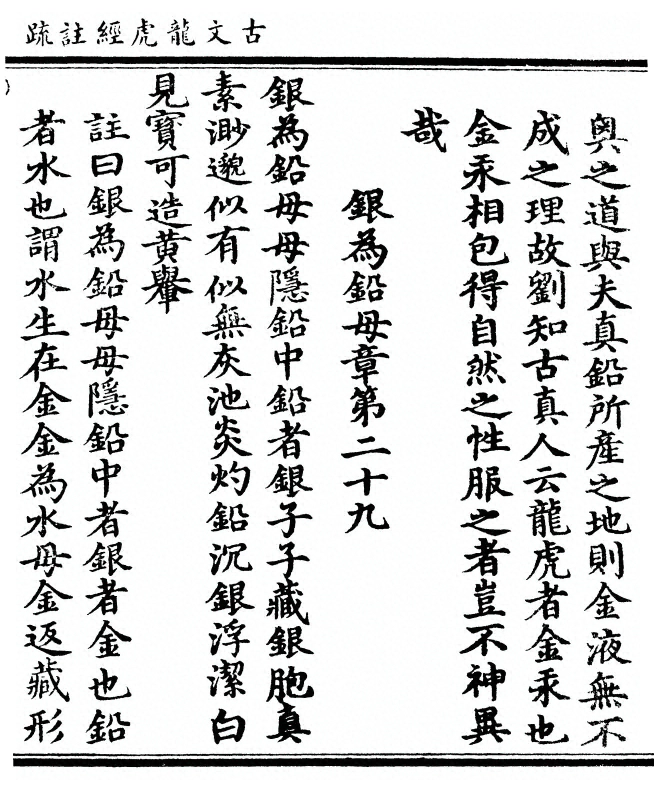 古文龍虎經註疏
奧之道與夫真鉛所產之地則金液無不
成之理故劉知古真人云龍虎者金汞也
金汞相包得自然之性服之者豈不神異
哉
銀為鉛母章第二十九
銀為鉛母母隱鉛中鉛者銀子子藏銀胞真
素渺邈似有似無灰池炎灼鉛沉銀浮潔白
見寶可造黃轝
註曰銀為鉛母母隱鉛中者銀者金也鉛
者水也謂水生在金金為水母金返藏形